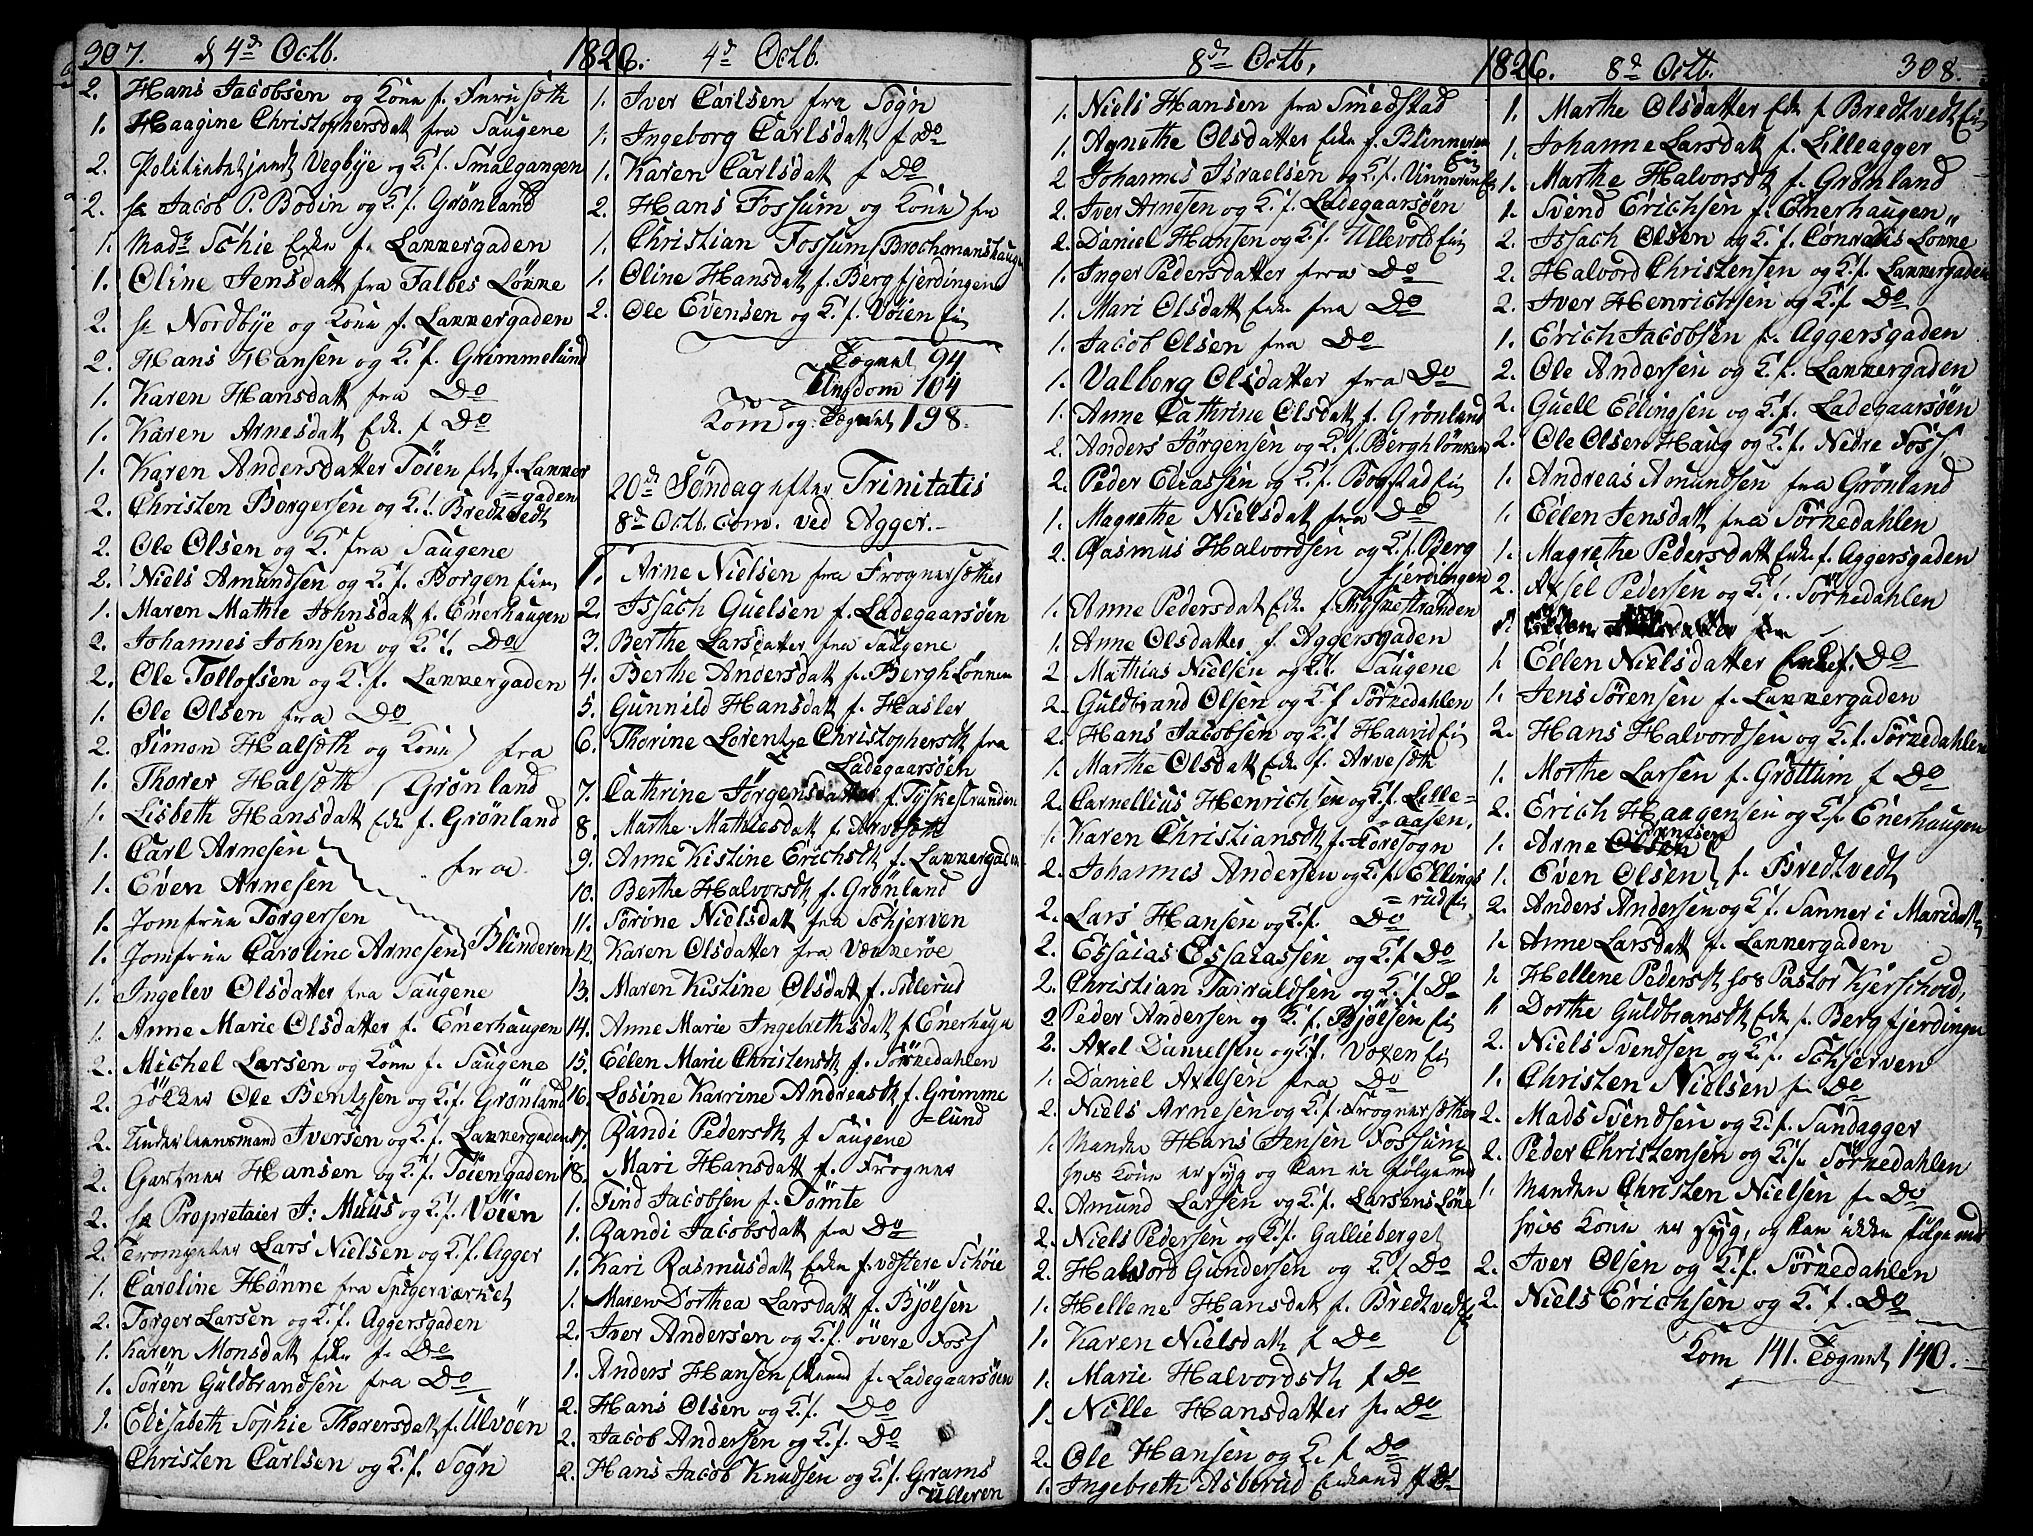 307. d 4de Octb. 1826. 4de Octb.
2. Hans Jacobsen og Kone f. Furusæth
1. Haagine Christophersdatt fra Saugene
2. Politiebetjent Vegbye og K. f. Smalgangen
2. Hr Jacob P. Bodin og K. f. Grønland
1. Madm Schie Enke f. Lakkergaden
1. Oline Jensdatt fra Falbes Løkke
2. Hr Nordbye og Kone f. Lakkergaden
2. Hans Hansen og K. f. Grimmelund
1. Karen Hansdatt fra Do
1. Karen Arnesdatt Enk. f Do
1. Karen Andersdatter Töien Enk f. Lakker
=gaden
2. Christen Borgersen og K. f. Bredtvedt
2. Ole Olsen og K. fra Saugene
2. Niels Amundsen og K. f. Borgen Eie
1. Maren Mathie Johnsdatt f. Enerhaugen
2. Johannes Johnsen og K. f. Do
2. Ole Tollofsen og K. f. Lakkergaden
1. Ole Olsen fra Do
2. Simon Halsæth og Kone } fra
1. Thorer Halsæth } Grønland
1. Lisbeth Hansdatt Enk f. Grønland
1. Carl Arnesen
1. Even Arnesen fra
1. Jomfrue Torgersen
1. Jomfrue Caroline Arnesen Blinderen
1. Ingelev Olsdatter fra Saugene
1. Anne Marie Olsdatter f. Enerhaugen
2. Michel Larsen og Kone f. Saugene
2. Høkker Ole Bentzsen og K. f. Grønland
2. Underleensmand Iversen og K. f. Lakkergaden
2. Gartner Hansen og K. f. Töiengaden
2. Hr Propretaier J: Muus og K. f. Vöien
2. Trompeter Lars Nielsen og K. f. Agger
1. Caroline Hönne fra Spigerværket
2. Torger Larsen og K. f. Aggersgaden
1. Karen Monsdatt Enke f. Do
1. Sören Guldbrandsen fra Do
1. Elisabeth Sophie Thorersdatt f. Ulvöen
Christen Carlsen og K. f. Sogn
1. Iver Carlsen fra Sogn
1. Ingeborg Carlsdatt f Do
1. Karen Carlsdatt f Do
2. Hans Fossum og Kone } fra
1. Christian Fossum } Brochmanshaugen
1. Oline Hansdatt f. Bergfjerdingen
2. Ole Evensen og K. f. Vöien Eie
Tegnet 94
Ungdom 104
Kom og Tegnet 198.
20de Söndag efter Trinitatis
8de Octb. Com. ved Agger.
1. Arne Nielsen fra Frognersæter
2. Issach Guelsen f. Ladegaarsöen
3. Berthe Larsdatter fra Saugene
4. Berthe Andersdatt f. Berghlökken
5. Gunnild Hansdatt f. Hasler
6. Thorine Lorentze Christophersdt fra
Ladegaarsöen
7. Cathrine Jörgensdatter f. Tyskestranden
8. Marthe Mathiesdatt f. Arvesæth
9. Anne Kistine Erichsdt f. Lakkergaden
10. Berthe Halvorsdt f. Grönland
11. Sörine Nielsdatt fra Schjerven
12. Karen Olsdatter fra Vækkeröe
13. Maren Kistine Olsdatt f. Sillerud
14. Anne Marie Ingebrethsdatt f Enerhaugen
15. Eelen Marie Christensdt f. Sörkedahlen
16. Losine Karrine Andreasdt f. Grimme
=lund
17. Randi Pedersdt f Saugene
18. Mari Hansdatt f. Frogner
1. Find Jacobsen f. Tömte
1. Randi Jacobsdatt fra Do
1. Kari Rasmusdatt Enke f. vestere Schöie
1. Maren Dorthea Larsdatt f. Bjölsen
2. Iver Andersen og K. f. övere Foss
1. Anders Hansen f. Ladegaarsöen
2. Hans Olsen og K. f. Do
2. Jacob Andersen og K. f. Do
2. Hans Jacob Knudsen og K. f. Grams
Ulleren
8de Octb, 1826. 8de Octb. 308.
1. Niels Hansen fra Smedstad
1. Agnethe Olsdatter Enke f. Blinneren
Eie
2. Johannes Israelsen og K. f. Unneren Eie
2. Iver Arnesen og K. f. Ladegaarsöen
2. Daniel Hansen og K. f. Ullevold Eie
1. Inger Pedersdatter fra Do
1. Mari Olsdatt Enke fra Do
1. Jacob Olsen fra Do
1. Valborg Olsdatter fra Do
1. Anne Cathrine Olsdatt f. Grönland
2. Anders Jörgensen og K. f. Berghlökken
2. Peder Eliassen og K. f. Bogstad Eie
1. Magrethe Nielsdatt fra Do
2. Rasmus Halvordsen og K. f. Berg
fjerdingen
1. Anne Pedersdat Enke f. Tyskestranden
1. Anne Olsdatter f. Aggersgaden
2. Mathias Nielsen og K. f. Saugene
2. Guldbrand Olsen og K. f Sörkedahlen
2. Hans Jacobsen og K. f Haavid Eie
1. Marthe Olsdatt Enke f. Arvesæth
2. Carnellius Henrichsen og K. f. Lille=
=aasen,
1. Karen Christiansdt f. Foresogn
2. Johannes Andersen og K. f. Ellings
=rud Eie
2. Lars Hansen og K. f. Do
2. Essaias Essaiassen og K. f Do
2. Christian Tarraldsen og K. f Do
2 Peder Andersen og K. f. Bjölsen Eie
2. Axel Danielsen og K. f. Voxen Eie
1. Daniel Axelsen fra Do
2. Niels Arnesen og K. f. Frognersæther
1. Manden Hans Jensen Fossum
hvis Kone er syg og kan ei følge med
2. Amund Larsen og K. f Larsens Löke
2. Niels Pedersen og K. f. Gallieberget
2. Halvord Gundersen og K. f Do
1. Hellene Hansdatt f. Bredtvedt Eie
1. Karen Nielsdatt f Do
1. Marie Halvordsdt f Do
1. Nille Hansdatter f. Do
2. Ole Hansen og K. f Do
1. Ingebreth Asberud Enkemand f Do
1. Marthe Olsdatter Enke f Bredtvedt Eie
1. Johanne Larsdatt f. Lilleagger
1. Marthe Halvorsdt f. Grönland
1. Svend Erichsen f. Enerhaugen
2. Issach Olsen og K. f. Conradis Lökke
2. Halvord Christensen og K. f. Lakkergaden
2. Iver Henrichsen og K. f Do
1. Erich Jacobsen f. Aggersgaden
2. Ole Andersen og K. f. Lakkergaden
2. Guell Ellingsen og K. f. Ladegaarsöen
2. Ole Olsen Haug og K. f. Nedre Foss,
1. Andreas Amundsen fra Grönland
1. Eelen Jensdatt fra Sörkedahlen
1. Magrethe Pedersdatt Enke f. Aggersgaden
2. Axsel Pedersen og K. f. Sörkedahlen
1 Eelen Nielsdatter Enke f. Do
1. Jens Sörensen f. Lakkergaden
2. Hans Halvordsen og K. f. Sörkedahlen
1. Morthe Larsen f. Gröttum f Do
2. Erich Haagensen og K. f. Enerhaugen
Arnesen
1. Arne Olsen
1. Even Olsen } f. Bredtvedt
2. Anders Andersen og K. f. Sanner i Maridalen
1. Anne Larsdatt f. Lakkergaden
1. Hellene Pedersdt hos Pastor Kjerschow,
1 Dorthe Guldbransdt Enke f. Bergfjerdingen
2. Niels Svendsen og K. f. Schjerven
1. Christen Nielsen f. Do
2. Mads Svendsen og K. f. Sandagger
2. Peder Christensen og K. f. Sörkedahlen
1. Manden Christen Nielsen f. Do
hvis Kone er syg, og kan ikke følge med
2. Iver Olsen og K. f. Sörkedahlen
2. Niels Erichsen og K. f. Do
Kom 141. Tegnet 140.